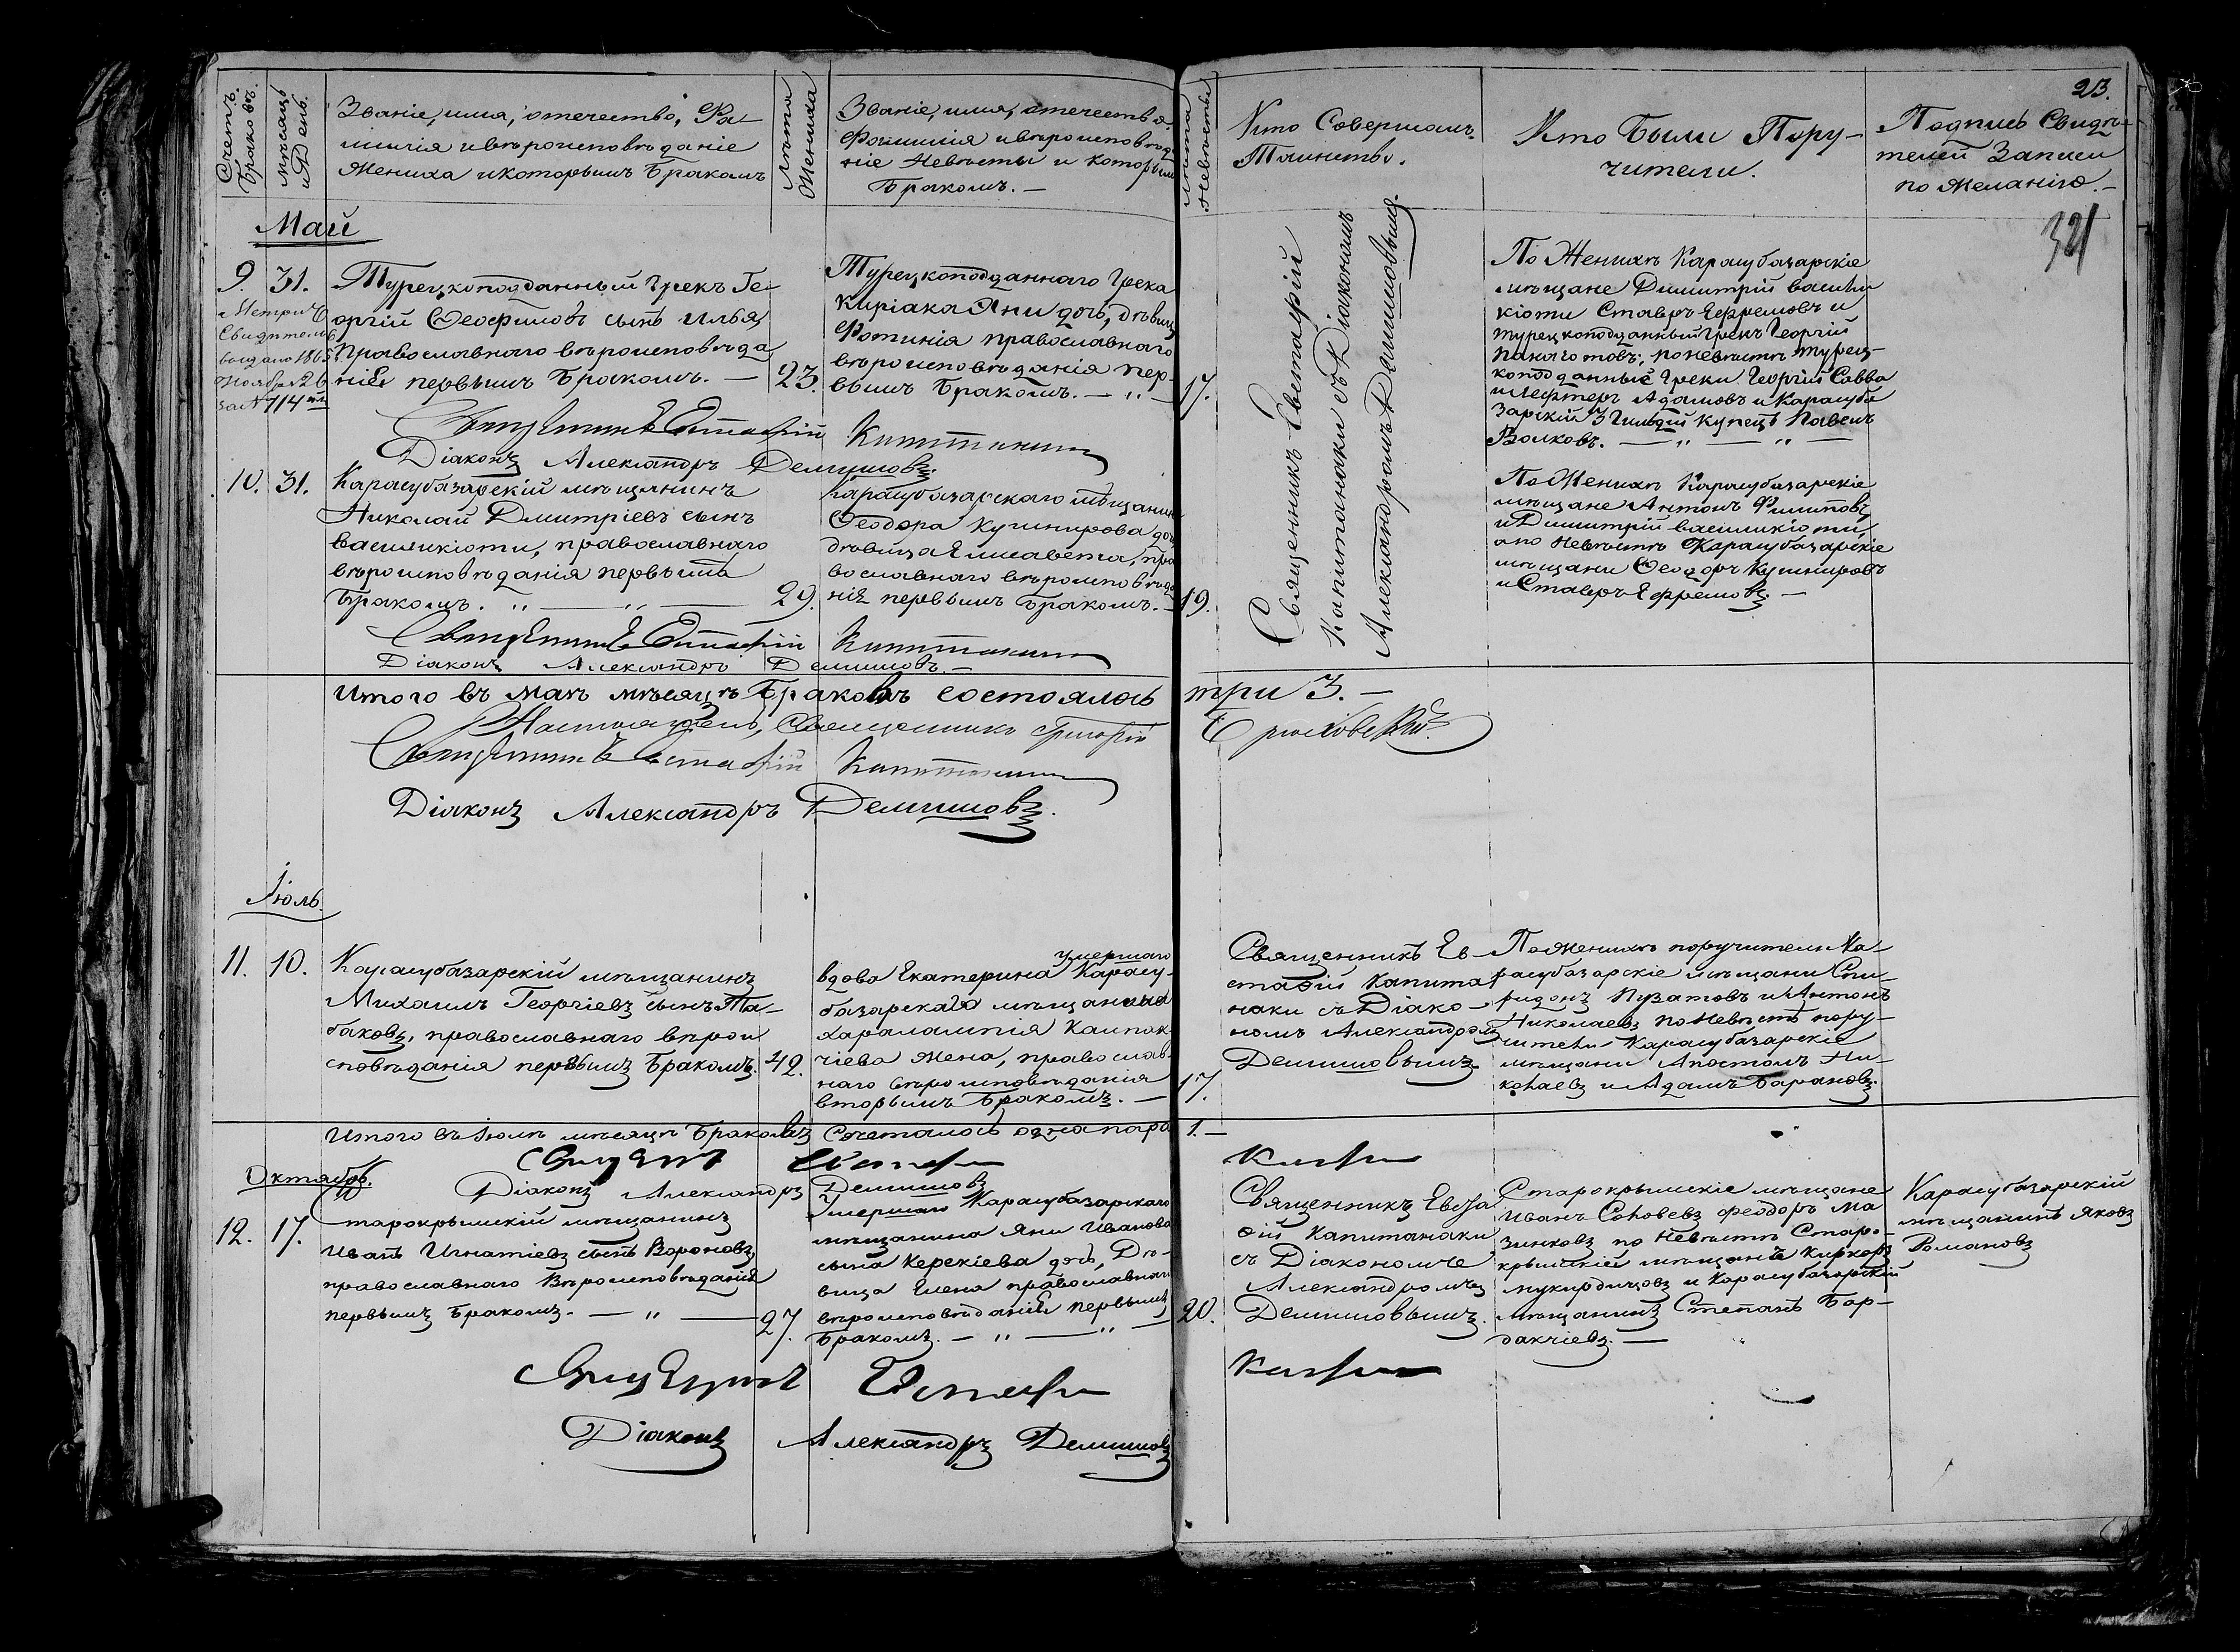 23.
321
Счетъ Браковъ.
Мѣсяцъ и День.
Званіе, имя, отечество, Фа-
милія и вѣроисповѣданіе
Жениха и которымъ Бракомъ
Лѣта Жениха
Званіе, имя, отечество
Фамилія и вѣроисповѣда
ніе Невѣсты и которым
Бракомъ. —
Лѣта Невѣсты
Кто Совершалъ
Таинство.
Кто Были Пору-
чители.
Подпись Свидѣ-
телей Записи
по желанію. —
Май
9. 31.
Метрич
Свидѣтель
выдано 1865
Ноября 26
за № 714
Турецкоподданный Грекъ Ге-
оргій Ѳеофиловъ сынъ Илья
Православнаго вѣроисповѣда
нія первымъ Бракомъ. —
23.
Турецкоподданнаго Грека
Киріака Яни дочь, дѣвица
Фотинія православнаго
вѣроисповѣданія пер-
вымъ Бракомъ. — " —
17.
Священникъ Евстафій
Капитанаки съ Діакономъ
Александромъ Демишовымъ.
По Женихѣ Карасубазарскіе
мѣщане Димитрій Васили
кіоти Ставръ Ефремовъ и
турецкоподданный Грекъ Георгій
Панаготовъ; по невѣстѣ турец-
коподданные Греки Георгій Савва
и Лефтеръ Адамовъ и Карасуба
зарскій 3 Гильдіи Купецъ Павелъ
Волковъ. — " — " —
Священникъ Евстафій Капитанаки
Діаконъ Александръ Демишовъ.
10. 31.
Карасубазарскій мѣщанинъ
Николай Дмитріевъ сынъ
Василикіоти, православнаго
вѣроисповѣданія первымъ
Бракомъ. " — " —
29.
Карасубазарскаго мѣщанин
Ѳеодора Кушнирова доч
дѣвица Елисавета, пра
вославнаго вѣроисповѣда
нія первымъ Бракомъ. —
19.
По Женихѣ Карасубазарскіе
мѣщане Антонъ Филиповъ
и Димитрій Василикіоти,
а по Невѣстѣ Карасубазарскіе
мѣщани Ѳеодоръ Кушнировъ
и Ставръ Ефремовъ. —
Священникъ Евстафій Капитанаки
Діаконъ Александръ Демишовъ. —
Итого въ Маѣ мѣсяцѣ Браковъ состоялось три 3. —
Настоятель, Священникъ Григорій
Священникъ Евстафій Капитанаки
Діаконъ Александръ Демишовъ.
Іюль
11. 10.
Карасубазарскій мѣщанинъ
Михаилъ Георгіевъ сынъ Та-
баковъ, православнаго вѣрои
сповѣданія первымъ Бракомъ.
42.
умершаго
вдова Екатерина Карасу-
базарскаго мѣщанина
Харалампія
чіева жена, православ-
наго вѣроисповѣданія
вторымъ Бракомъ. —
17.
Священникъ Ев-
стафій Капита
наки съ Діако-
номъ Александромъ
Демишовымъ.
По женихѣ поручители Ка-
расубазарскіе мѣщани Спи-
ридонъ Пузатовъ и Антонъ
Николаевъ по Невѣстѣ пору-
чители Карасубазарскіе
мѣщани Апостолъ Ни-
колаевъ и Адамъ Барановъ.
Итого въ Іюлѣ мѣсяцѣ Браковъ Сочеталось одна пара 1. —
Діаконъ Александръ Демишовъ
Октябрь.
12. 17.
Старокрымскій мѣщанинъ
Иванъ Игнатіевъ сынъ Вороновъ,
православнаго Вѣроисповѣданія
первымъ Бракомъ. — " —
27.
Умершаго Карасубазарскаго
мѣщанина Яни Иванова
сына Керекіева дочь, Дѣ-
вица Елена православнаго
вѣроисповѣданія первымъ
Бракомъ. — " — " —
20.
Священникъ Евста
фій Капитанаки
съ Діакономъ
Александромъ
Демишовымъ.
Старокрымскіе мѣщане
Иванъ Соловевъ Феодоръ Ма
зинковъ по Невѣстѣ Старо-
крымскій мѣщанъ Киркоръ
и Карасубазарскій
мѣщанинъ Степанъ Бар-
дакчіевъ. —
Карасубазарскій
мѣщанинъ Яковъ
Романовъ
Діаконъ Александръ Демишовъ